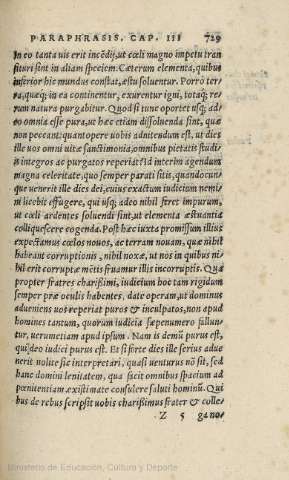 PARAPHRASIS. CAP. III 729
In eo tanta uis erit incēdij, ut cœli magno impetu tran
situri sint in aliam speciem. Cæterum elementa, quibus
inferior hic mundus constat, æstu soluentur. Porro ter⸗
ra, quæq; in ea continentur, exurentur igni, totaq; re⸗
rum natura purgabitur. Quod si tunc oportet usq; ad⸗
eo omnia esse pura, ut hæc etiam dissoluenda sint, quæ
non peccant: quantopere uobis adnitendum est, ut dies
ille uos omni uitæ sanctimonia, omnibus pietatis studi⸗
is integros ac purgatos reperiat? Id interim agendum
magna celeritate, quo semper parati sitis, quandocun⸗
que uenerit ille dies dei, cuius exactum iudicium nemi⸗
ni licebit effugere, qui usq; adeo nihil feret impurum,
ut cœli ardentes soluendi sint, ut elementa æstuantia
colliquescere cogenda. Post hæc iuxta promissum illius
expectamus cœlos nouos, ac terram nouam, quæ nihil
habeant corruptionis, nihil noxæ, ut nos in quibus ni⸗
hil erit corruptæ mētis fruamur illis incorruptis. Qua
propter fratres charissimi, iudicium hoc tam rigidum
semper præ oculis habentes, date operam, ut dominus
adueniens uos reperiat puros & inculpatos, non apud
homines tantum, quorum iudicia sæpenumero fallun⸗
tur, uerumetiam apud ipsum. Nam is demū purus est,
qui deo iudici purus est. Et si forte dies ille serius adue
nerit nolite sic interpretari, quasi uenturus nō sit, sed
hanc domini lenitatem, qua facit omnibus spacium ad
pœnitentiam existimate consulere saluti hominū. Qui
bus de rebus scripsit uobis charissimus frater & colle⸗
Z 5 ganos
Ministerio de Educación, Cultura y Deporte